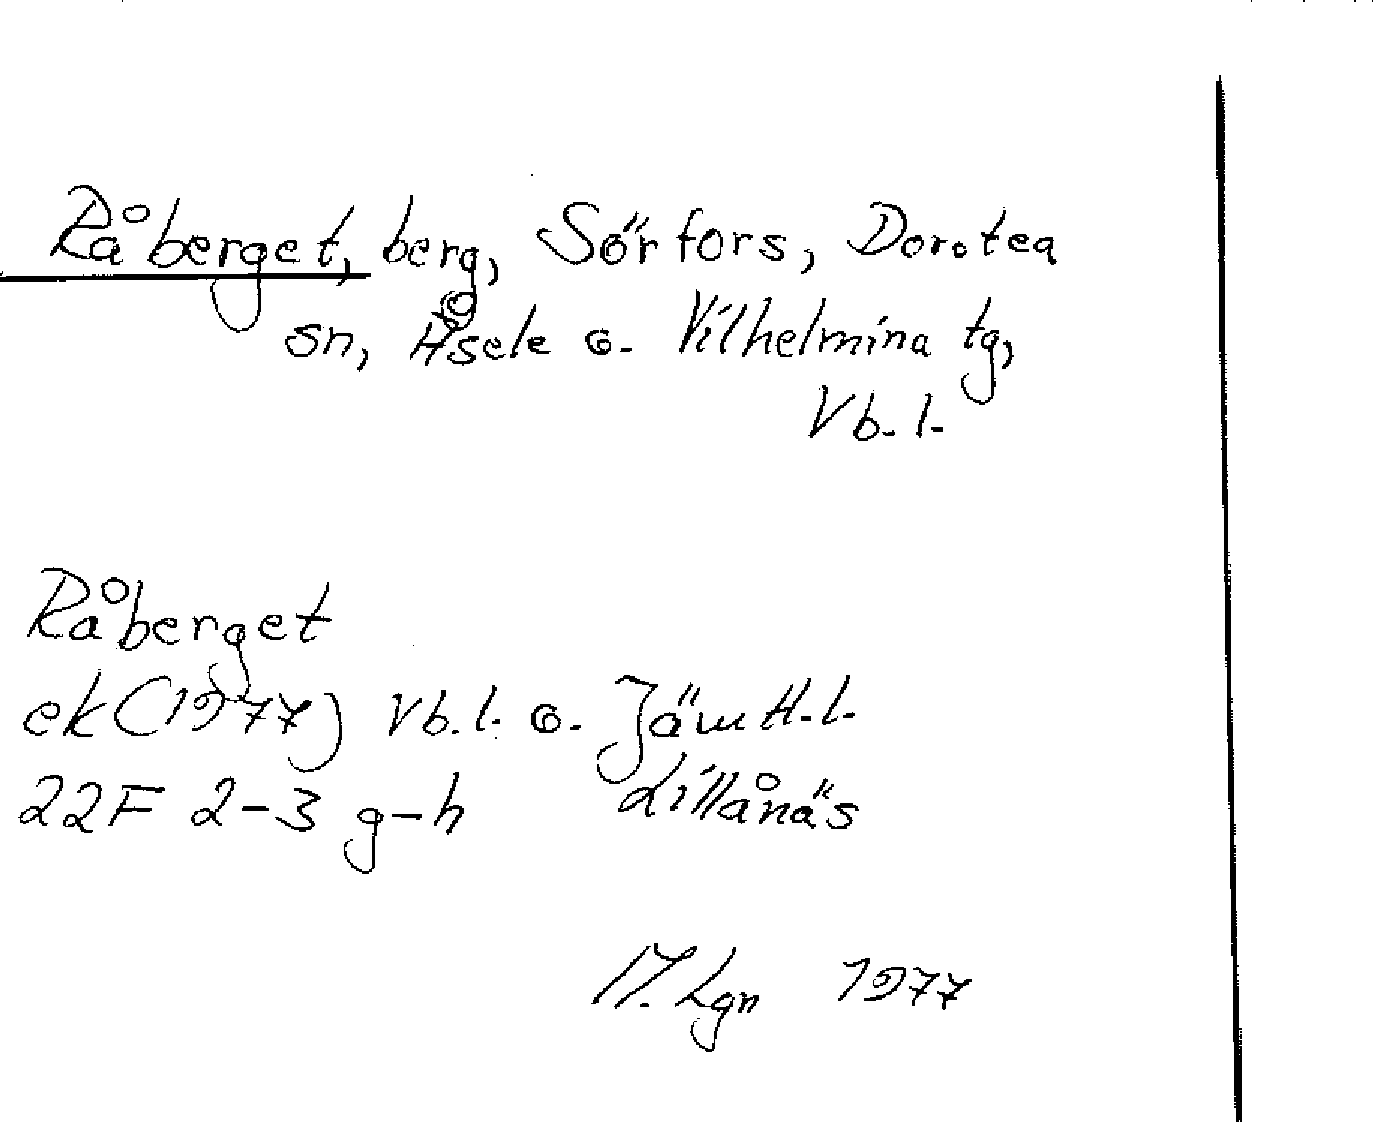 Råberget, berg, Sörfors, Dorotea
sn, Åsele o. Vilhelmina tg,
Vb. l.
Råberget
ek (1977) Vb. l. o. Jämtl. l.
22F 2-3 g-h Lillånäs
M. Lgn 1977